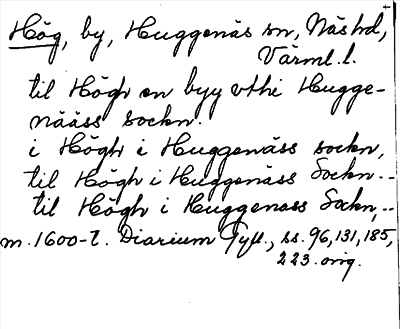 Hög, by, Huggenäs sn, Näs hd,
Värml. l.
til Högh en byy vthi Hugge-
nääss sockn.
i Högh i Huggenäss sockn,
til Högh i Huggenäss Sockn..
til Högh i Huggenass Sockn,..
m. 1600-t. Diarium Gyll., ss. 96, 131, 185,
223. orig.